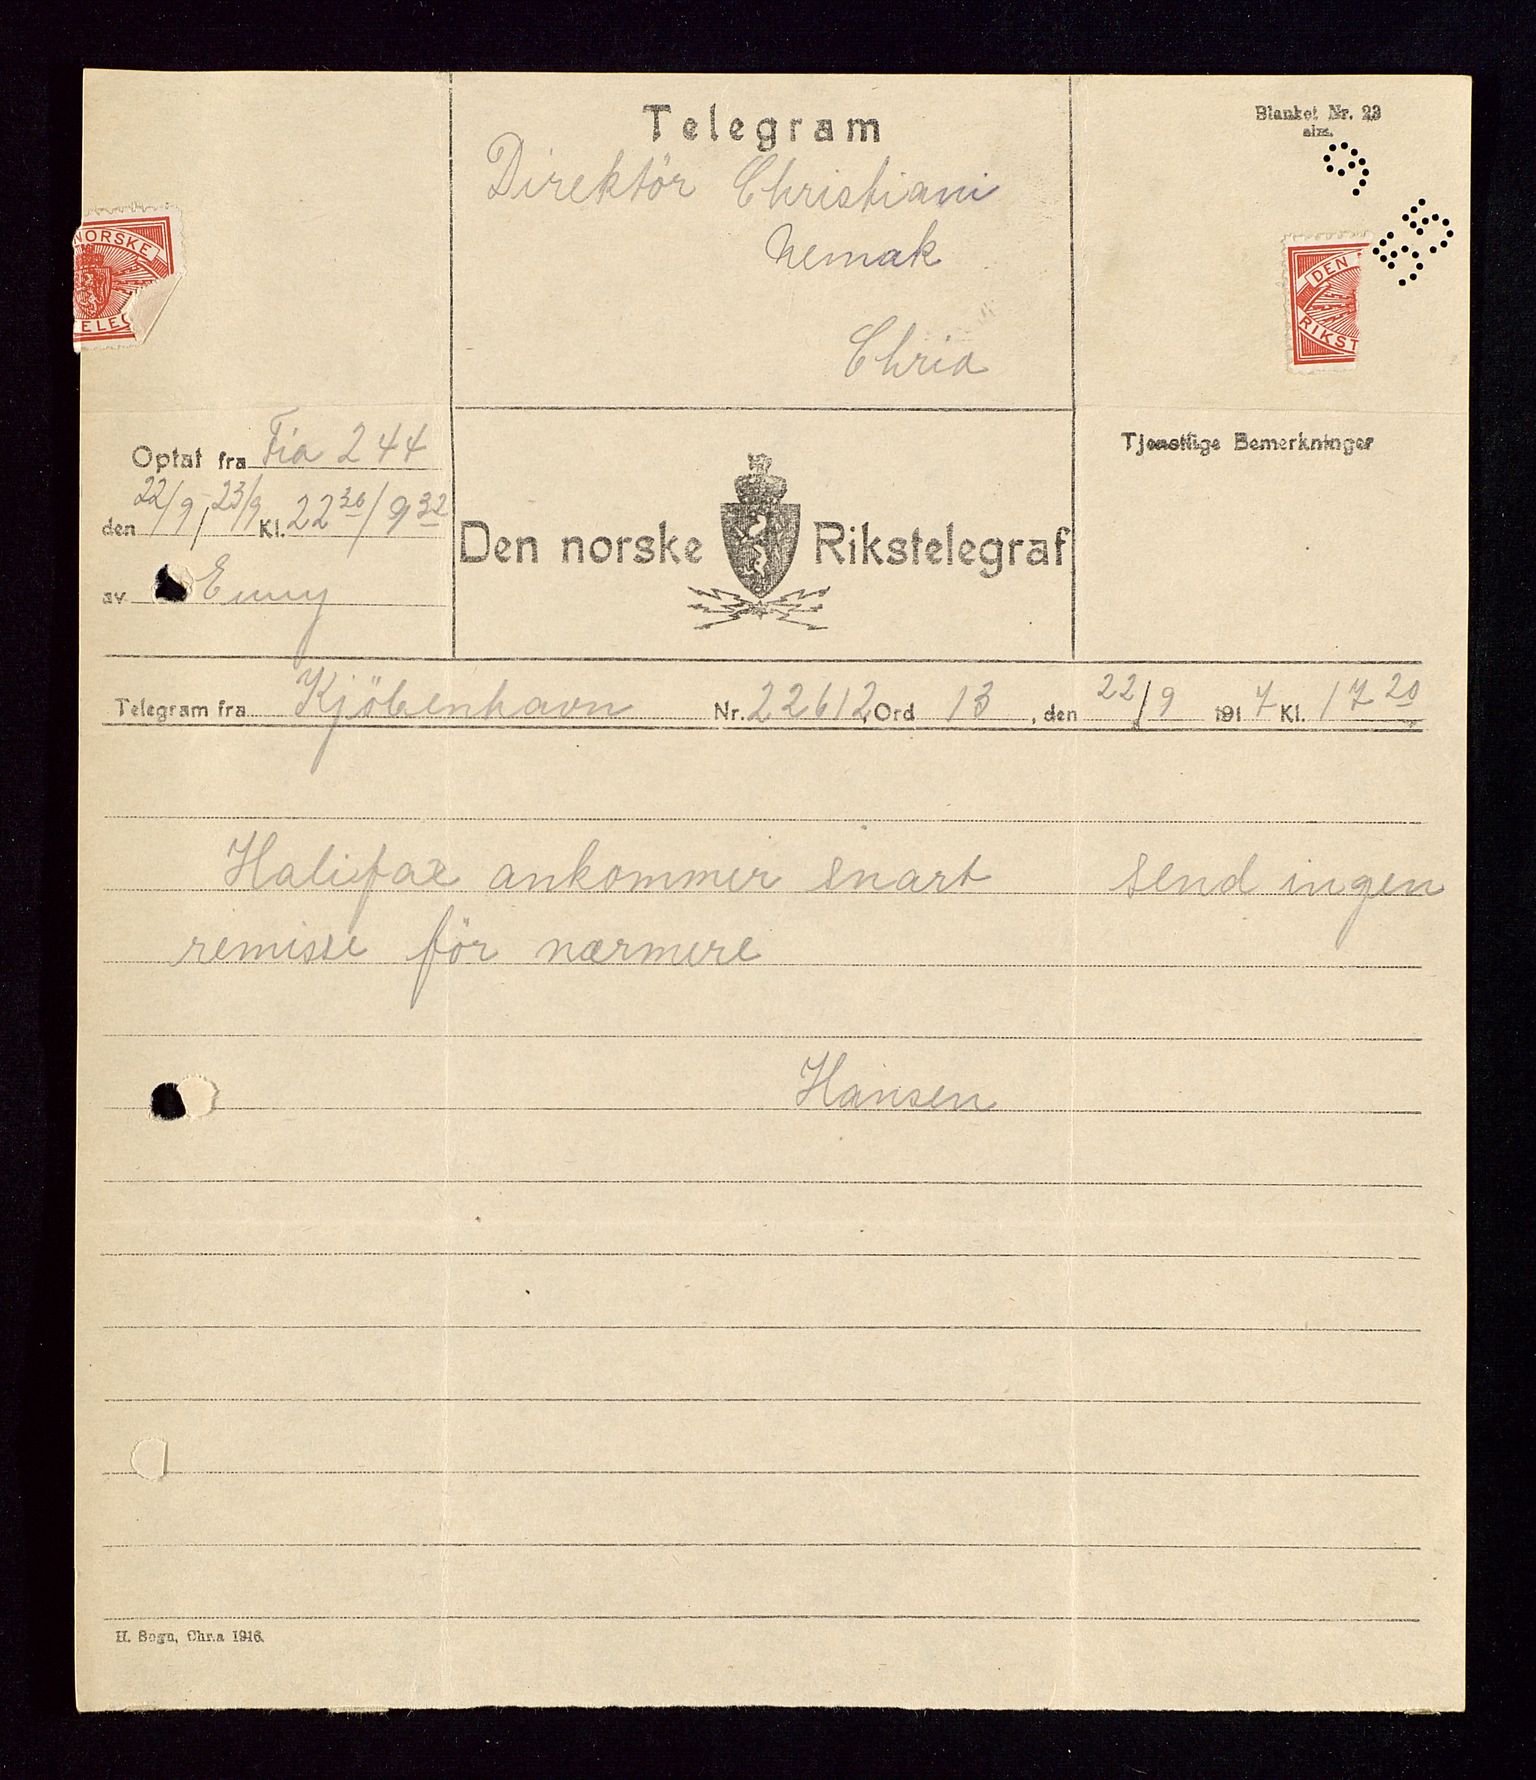 Telegram
Blanket Nr. 23
alm.
Direktör Christiani
Nemak
Chria
NORSKE
TELEG
DEN
RIKST
Optat fra Fia 244
den 22/9, 23/9 Kl. 22 36 / 9 32
av
Den norske Rikstelegraf
Tjenstlige Bemerkninger
Telegram fra Kjöbenhavn Nr. 22612, Ord 13, den 22/9 1917 Kl. 17 20
Halifax ankommer snart send ingen
remisse för nærmere
Hansen
H. Bogn, Chr.a 1916.